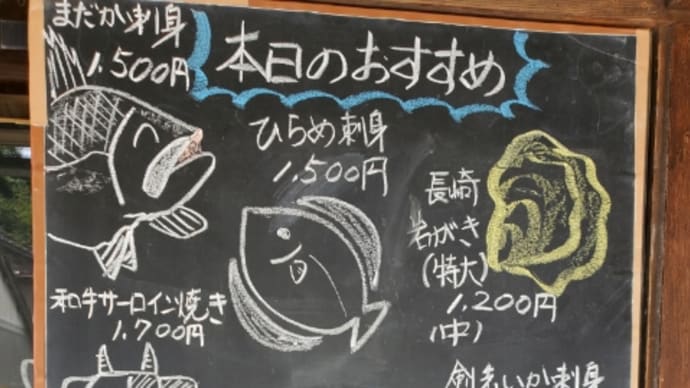 本日のおすすめ
まだかい刺身
1,500円
ひらめ刺身
1,500円
長崎
岩がき
(特大)
1,200円
(中)
和牛サーロイン焼き
1,700円
いか刺身